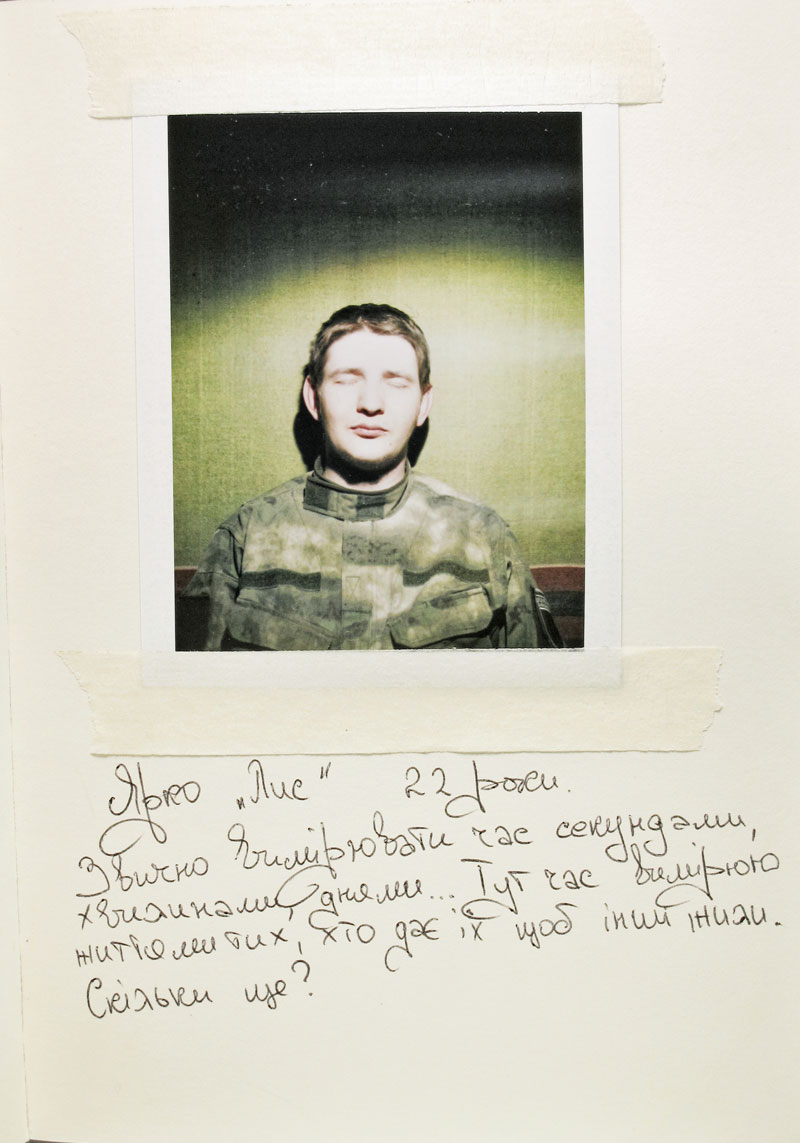 Ярко „Лис“ 22 роки.
Звично вимірювати час секундами,
хвилинами, днями... Тут час вимірюю
життями тих, хто дає їх щоб інши жили.
Скільки ще?